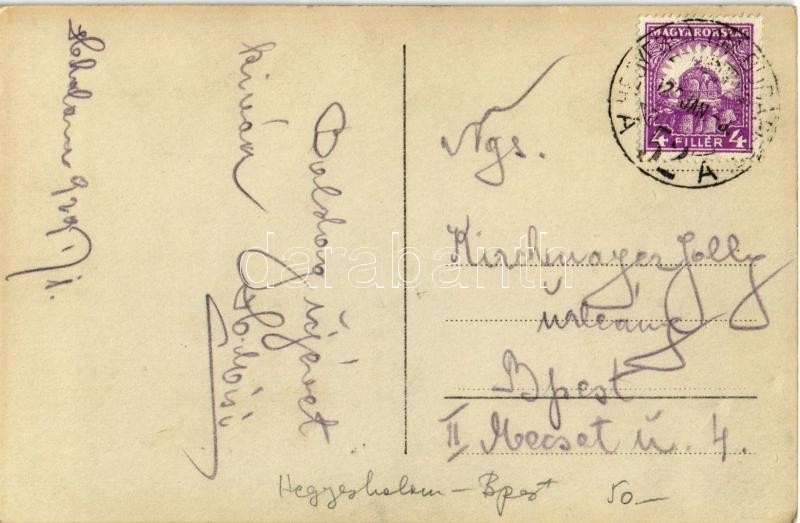 Hhalom 929. I/1.
Boldog újévet
kíván
Ngs.
Kirchmayer Jolly
Úrleány
Bpest
II Mecset u. 4.
MAGYARORSZÁG
4 FILLÉR 4
Hegyeshalom – Bpest 50 –
darabanth